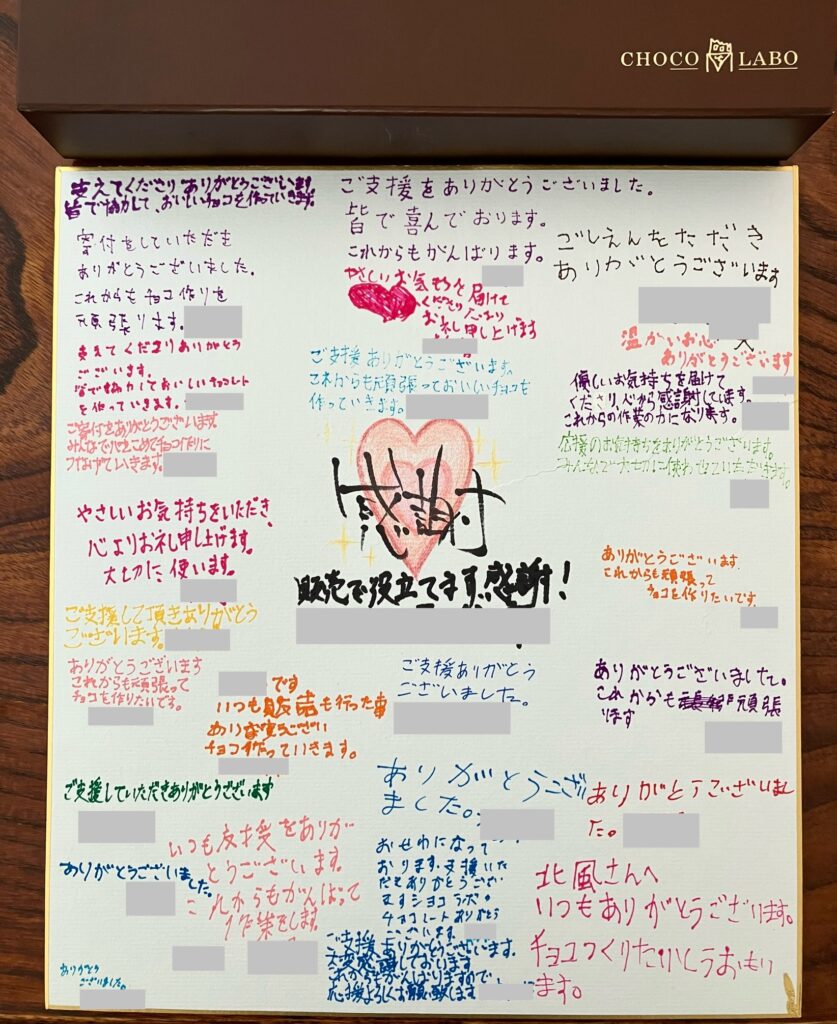 CHOCO LABO
支えてくださりありがとうございます
皆で協力して、おいしいチョコを作っていきます。
ご支援をありがとうございました。
皆で喜んでおります。
これからもがんばります。
ごしえんをただき
ありがとうございます
寄付をしていただき
ありがとうございました。
これからもチョコ作りを
頑張ります。
やさしいお気持を届けて
くださり
お礼申し上げます
温かいお心
ありがとうございます
支えてくださりありがとう
ございます。
皆で協力しておいしいチョコレート
を作っていきます。
ご支援ありがとうございます。
これからも頑張っておいしいチョコを
作っていきます。
優しいお気持ちを届けて
くださり、心から感謝しています。
これからの作業の力になります。
ご寄付をありがとうございます
みんなで心をこめてチョコ作りに
つなげていきます。
応援のお気持ちをありがとうございます。
みんなで大切に使わせていただきます。
感謝
やさしいお気持ちをいただき、
心よりお礼申し上げます。
大切に使います。
販売で役立てます。感謝!
ありがとうございます。
これからも頑張って
チョコを作りたいです。
ご支援して頂きありがとう
ございます。
ありがとうございます
これからも頑張って
チョコを作りたいです。
です
いつも販売も行った事
チョコ作っていきます。
ご支援ありがとう
ございました。
ありがとうございました。
これからも頑張
ります
ご支援していただきありがとうございます
ありがとうござい
ました。
ありがとうございまし
た。
いつも支援をありが
とうございます。
これからもがんばって
作業をします。
ありがとうございました。
おせわになって
おります。支援いた
だきありがとうござい
ますショコラボ。
チョコレートありがとう
ございます。
北風さんへ
いつもありがとうございます。
チョコつくりたいとうおもい
ます。
ご支援ありがとうございます。
大変感謝しております
これからもがんばりますので
応援よろしくお願い致します
ありがとう
ございました。